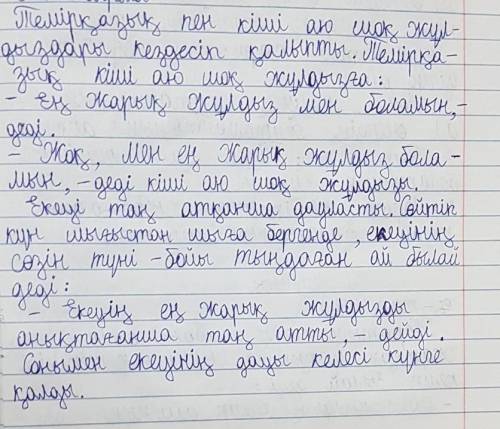 Темірқазық пен кіші аю шоқ жұл-
дыздары кездесіп қалыпты. Темірқа-
зық кіші аю шоқ жұлдызға:
- Ең жарық жұлдыз мен боламын,-
деді.
- Жоқ, мен ең жарық жұлдыз бола-
мын, - деді кіші аю шоқ жұлдызы.
Екеуі таң атқанша дауласты. Сөйтіп
күн шығыстан шыға бергенде, екеуінің
сөзін түні - бойы тыңдаған ай былай
деді:
- Екеуің ең жарық жұлдызды
анықтағанша таң атты, - дейді.
Сонымен екеуінің дауы келесі күнге
қалды.